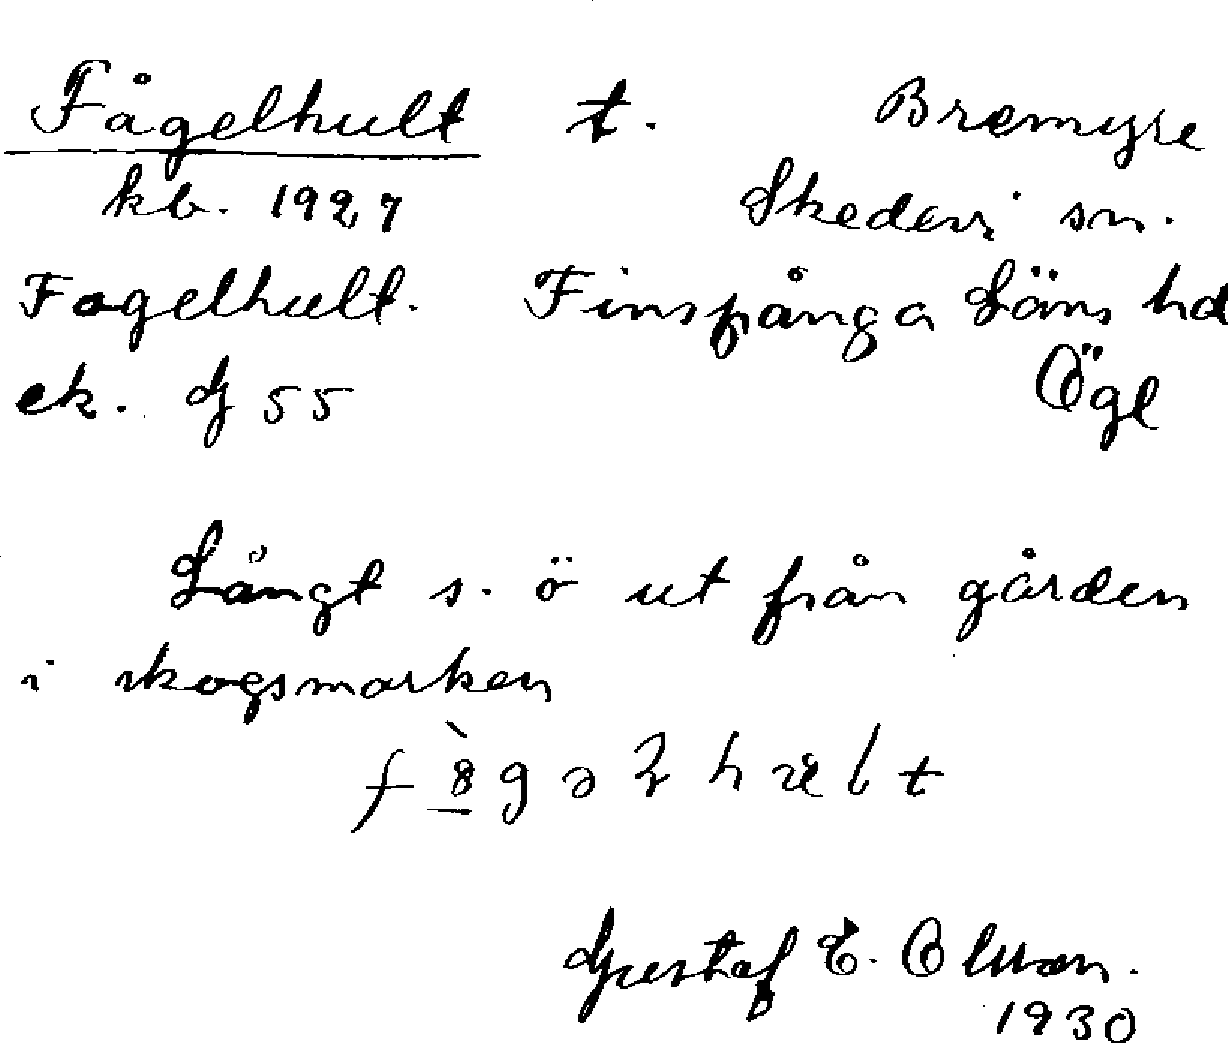 Fågelhult t. Bremyre
kb. 1927 Skedevi sn.
Fogelhult. Finspånga Läns hd
ek. G 55 Ögl
Långt s. ö ut från gården
i skogsmarken
Gustaf E. Olsson.
1930